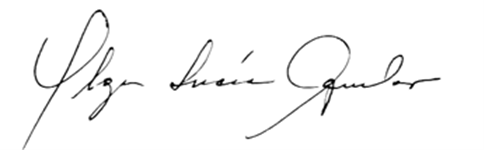 Olga Lucía Aguilar